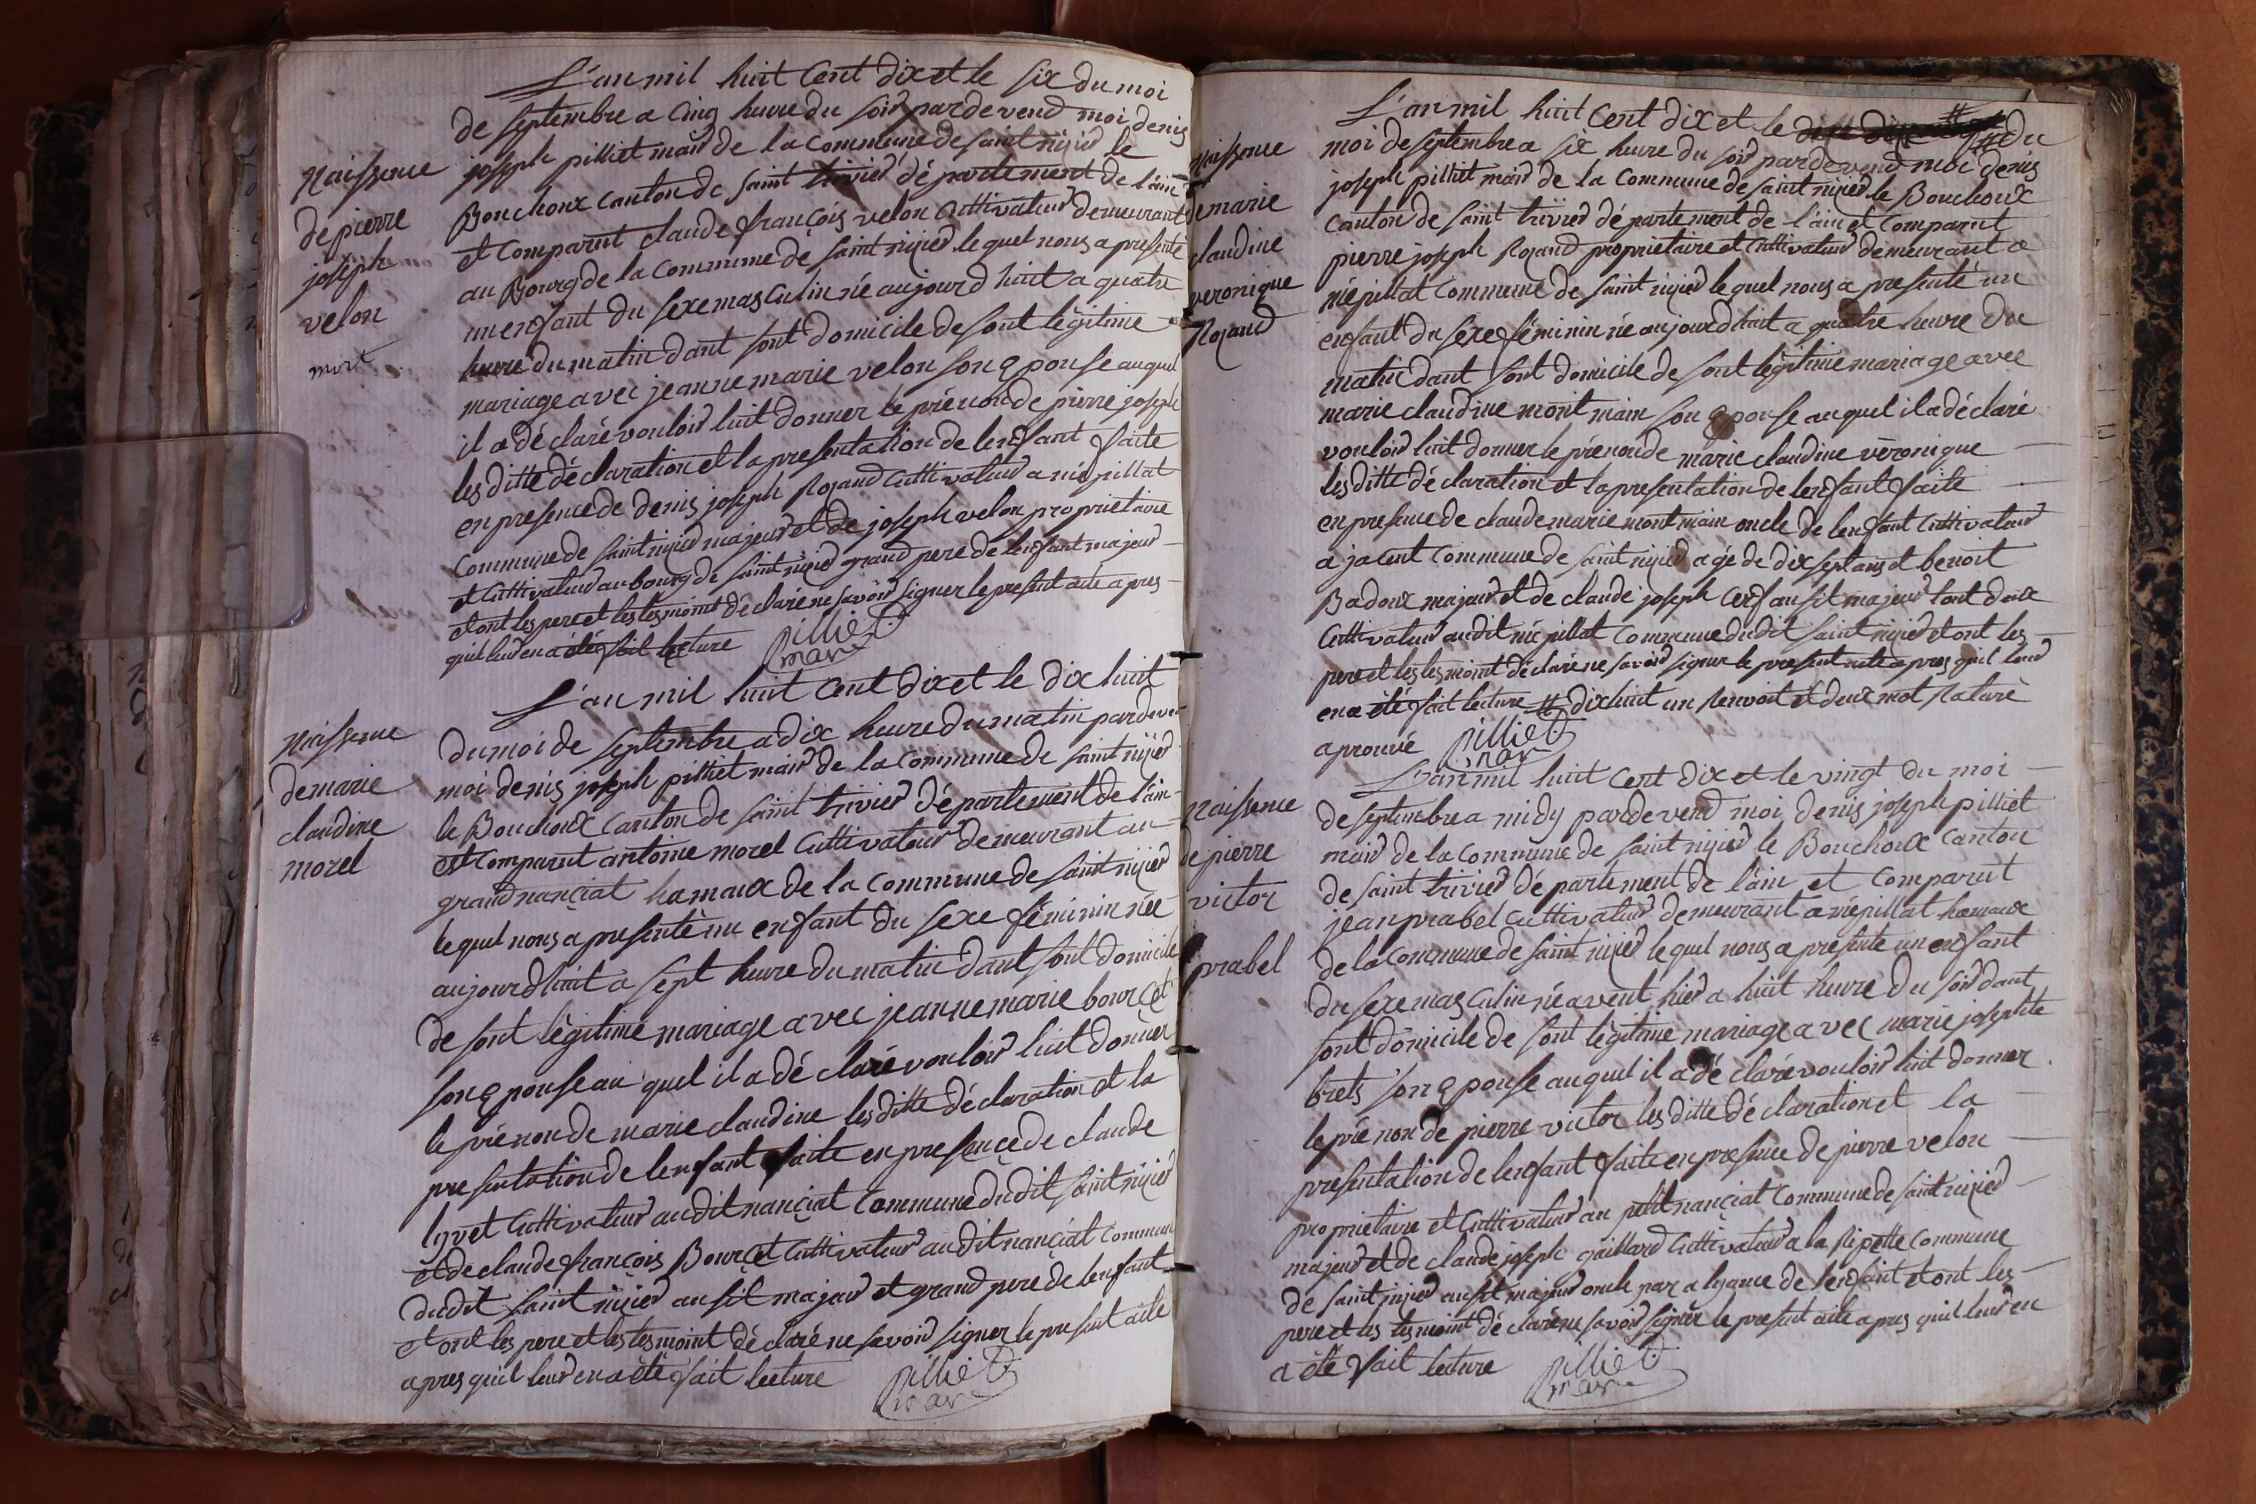 L'an mil huit Cent dix et le six du moi
de septembre a Cinq heure du soir pardevend moi denis
joseph pilliet mair de la Commune de saint nizier le
Bouchoux Canton de saint trivier département de l'ain
et Comparut claude françois velon Cuttivateur demeurant
au Bourg de la Commune de saint nizier le quel nous a presenté
un enfant du sexe masculin né aujourd huit a quatre
heure du matin dant sont domicile de sont légitime
mariage avec jeanne marie velon son epouse auquel
il a déclaré vouloir luit donner le prénon de pierre joseph
les ditte déclaration et la presentation de lenfant faite
en presence de denis joseph Rozand Cuttivateur a niépillat
Commune de saint nizier majeur et de joseph velon proprietaire
et Cuttivateur au bourg de saint nizier grand pere de lenfant majeur
et ont les pere et les tesmoint déclaré ne savoir signer le present acte apres
quil leur en a été fait lecture Pilliet
mair
Naissence
de pierre
joseph
velon
mort
L'an mil huit Cent dix et le dix huit
du moi de septembre a dix heure du matin pardeven
moi denis joseph pilliet mair de la Commune de saint nizier
le Bouchoux Canton de saint trivier département de l'ain
est Comparut antoine morel Cuttivateur demeurant au
grand nanciat hamaux de la Commune de saint nizier
le quel nous a presenté un enfant du sexe féminin née
aujourdhuit a sept heure du matin dant sont domicile
de sont légitime mariage avec jeanne marie bourcet
son epouse au quel il a déclaré vouloir luit donner
le prénon de marie claudine les ditte déclaration et la
presentation de lenfant faite en presence de claude
lyvet Cuttivateur audit nanciat Commune dudit saint nizier
et de claude françois Bourcet Cuttivateur audit nanciat Commune
dudit saint nizier ausit majeur et grand pere de lenfant
et ont les pere et les tesmoint déclaré ne savoir signer le present acte
apres quil leur en a été fait lecture Pilliet
mair
Naissence
de marie
claudine
morel
L'an mil huit Cent dix et le du
moi de septembre a six heure du soir pardevend moi denis
joseph pilliet mair de la Commune de saint nizier le Bouchoux
Canton de saint trivier département de l'ain et Comparut
pierre joseph Rozand proprietaire et Cuttivateur demeurant a
niépillat Commune de saint nizier le quel nous a presenté un
enfant du sexe féminin né aujourdhuit a quatre heure du
matin dant sont domicile de sont légitime mariage avec
marie claudine mont main son epouse auquel il a déclaré
vouloir luit donner le prénon de marie claudine véronique
les ditte déclaration et la presentation de lenfant faite
en presence de claude marie mont main oncle de lenfant Cuttivateur
a jacent Commune de saint nizier agé de dix sept ans et benoit
Badoux majeur et de claude joseph Cerf ausit majeur tout deux
Cuttivateur audit niépillat Commune dudit saint nizier et ont les
pere et les tesmoint déclaré ne savoir signer le present acte apres quil leur
en a été fait lecture # dix huit un renvoit et deux mot raturé
aprouvé Pilliet
mair
Naissence
de marie
claudine
veronique
Rozand
L'an mil huit Cent dix et le vingt du moi
de septembre a midy pardevend moi denis joseph pilliet
mair de la Commune de saint nizier le Bouchoux Canton
de saint trivier département de l'ain et Comparut
jean prabel Cuttivateur demeurant a niépillat hamaux
de la Commune de saint nizier le quel nous a presenté un enfant
du sexe masculin né avent hier a huit heure du soir dant
sont domicile de sont légitime mariage avec marie josephte
brets son epouse auquel il a déclaré vouloir luit donner
le prénon de pierre victor les ditte déclaration et la
presentation de lenfant faite en presence de pierre velon
proprietaire et Cuttivateur au petit nanciat Commune de saint nizier
majeur et de claude joseph gaillard Cuttivateur a la ripette Commune
de saint nizier ausit majeur oncle par alyance de lenfant et ont les
pere et les tesmoint déclaré ne savoir signer le present acte apres quil leur en
a été fait lecture Pilliet
mair
Naissence
de pierre
victor
prabel